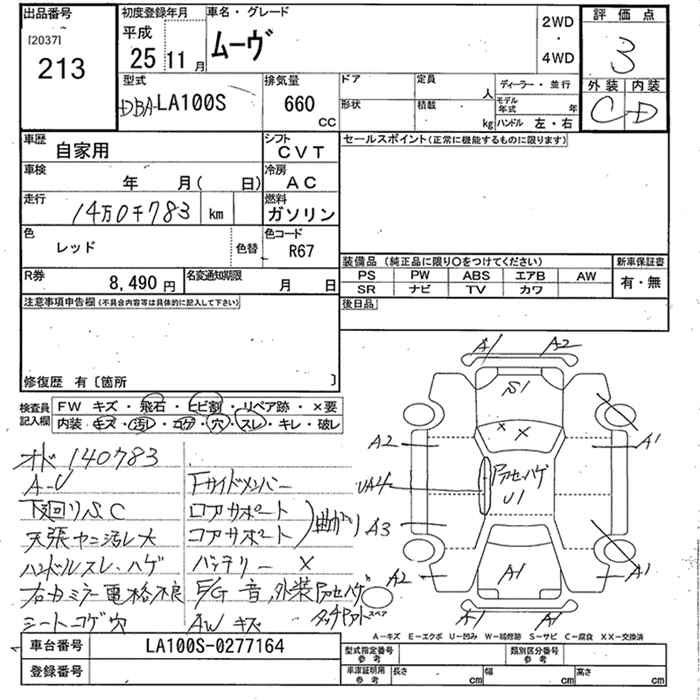 出品番号
[2037]
213
初度登録年月
平成
25 11 月
車名・グレード
ムーヴ
2WD
・
4WD
評価点
3
外装 内装
C D
型式
DBA-LA100S
排気量
660
CC
ドア
形状
定員
人
積載
kg
ディーラー・並行
モデル年式 年
ハンドル 左・右
車歴
自家用
シフト
CVT
車検
年 月( 日)
冷房
AC
走行
14万0千783 km
燃料
ガソリン
色
レッド
色替
色コード
R67
R券
8,490 円
名変通知期限
月 日
セールスポイント(正常に機能するものに限ります)
装備品 (純正品に限り○をつけてください)
PS PW ABS エアB AW
SR ナビ TV カワ
新車保証書
有・無
後日品
注意事項申告欄(不具合内容等は具体的に記入して下さい)
修復歴 有〔箇所 〕
検査員記入欄
FW キズ・飛石・ヒビ割・リペア跡・×要
内装 キズ・汚レ・コゲ・穴・スレ・キレ・破レ
オド 140783
A-U
下廻りS C
天張ヤニ汚レ大
ハンドルスレ、ハゲ
右カミラー電格不良
シートコゲ穴
Fサイドメンバー
ロアサポート
コアサポート
曲がり
バッテリー ×
E/G 音,外装アカセハゲ
タッチアト
AW キズ
A1 A2
S1
× ×
A2
A1
アカセハゲ
U1
UA4
A3
A2
A1
A1
A1 A1
スペア
A-キズ E-エクボ U-凹み W-補修跡 S-サビ C-腐食 XX-交換済
車台番号
LA100S-0277164
登録番号
型式指定番号
参考
類別区分番号
参考
車庫証明用
参考
長さ cm 幅 cm 高さ cm